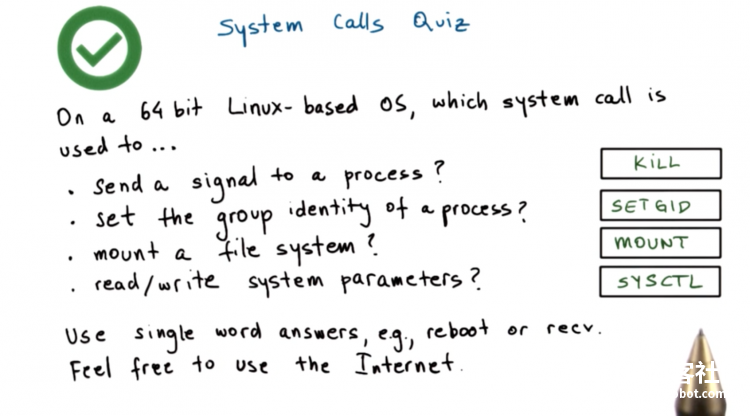 System Calls Quiz
On a 64 bit Linux-based OS, which system call is
used to...
• send a signal to a process? KILL
• set the group identity of a process? SETGID
• mount a file system? MOUNT
• read/write system parameters? SYSCTL
Use single word answers, e.g., reboot or recv.
Feel free to use the Internet.